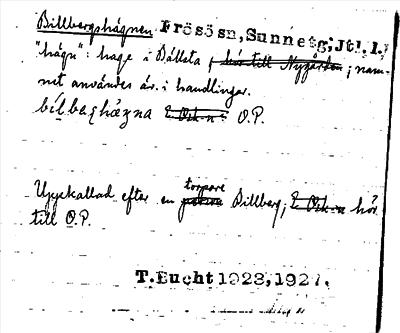 Billbergshägnen Frösö sn, Sunne tg, Jtl. l.
"hägn": hage i Bålsta, hör till Nygården; nam-
net användes äv. i handlingar.
O.P.
Uppkallad efter en torpare Billberg; hör
till O.P.
T. Bucht 1923, 1927.